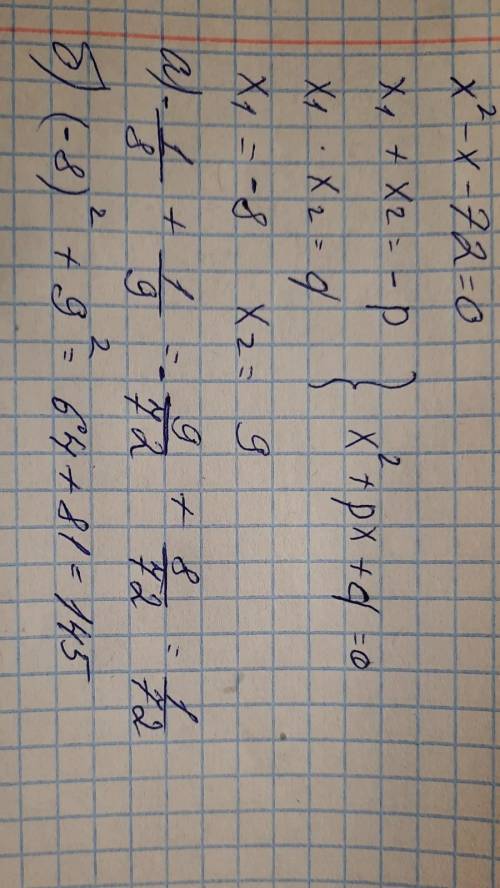 x² - x - 72 = 0
x₁ + x₂ = -p } x² + px + q = 0
x₁ · x₂ = q
x₁ = -8 x₂ = 9
а) -1/8 + 1/9 = -9/72 + 8/72 = 1/72
б) (-8)² + 9² = 64 + 81 = 145